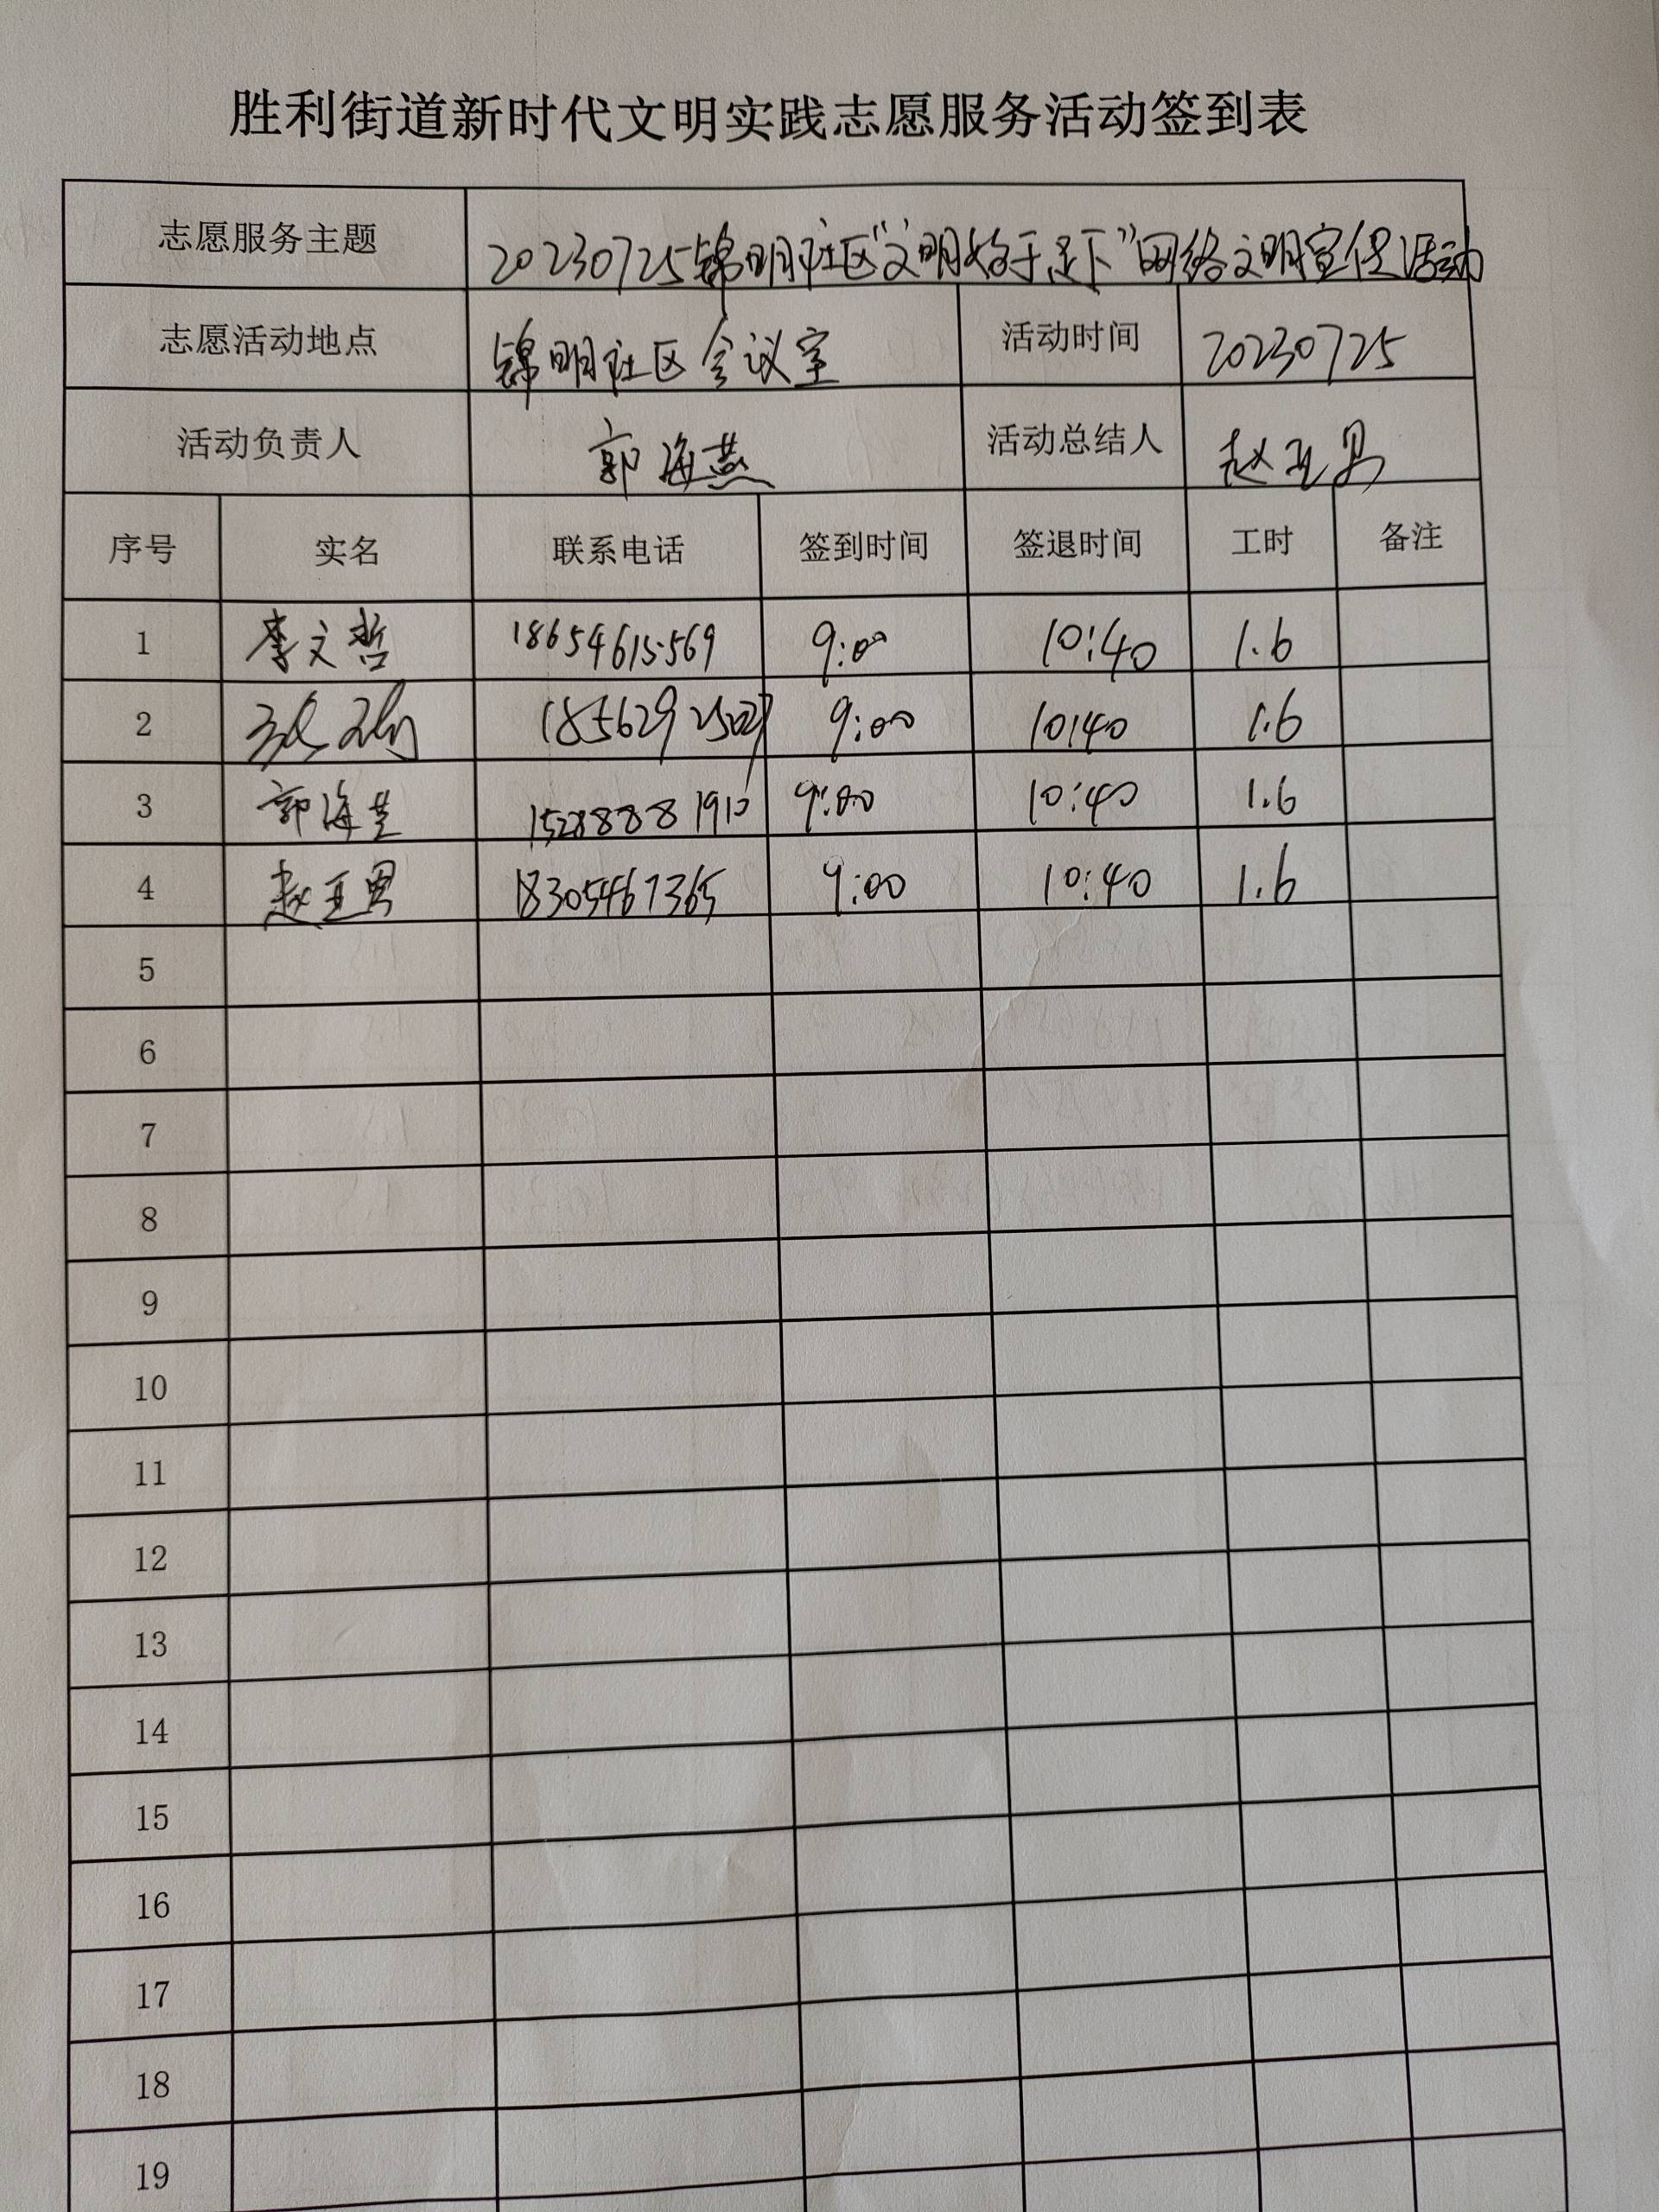 胜利街道新时代文明实践志愿服务活动签到表
志愿服务主题 20230725锦明社区“文明始于足下”网络文明宣促活动
志愿活动地点 锦明社区会议室 活动时间 20230725
活动负责人 郭海燕 活动总结人 赵亚男
序号 实名 联系电话 签到时间 签退时间 工时 备注
1 李文哲 18654615569 9:00 10:40 1.6
2 9:00 10:40 1.6
3 郭海燕 15288881910 9:00 10:40 1.6
4 赵亚男 18305467365 9:00 10:40 1.6
5
6
7
8
9
10
11
12
13
14
15
16
17
18
19